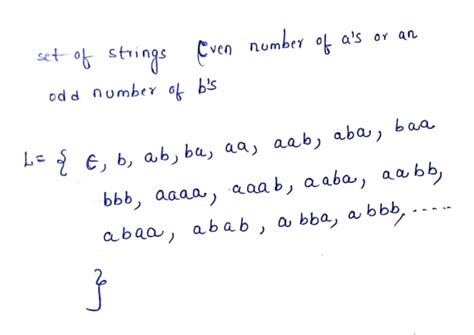 set of strings Even number of a's or an
odd number of b's
L= { ϵ, b, ab, ba, aa, aab, aba, baa
bbb, aaaa, aaab, aaba, aabb,
abaa, abab, abba, abbb, .....
}